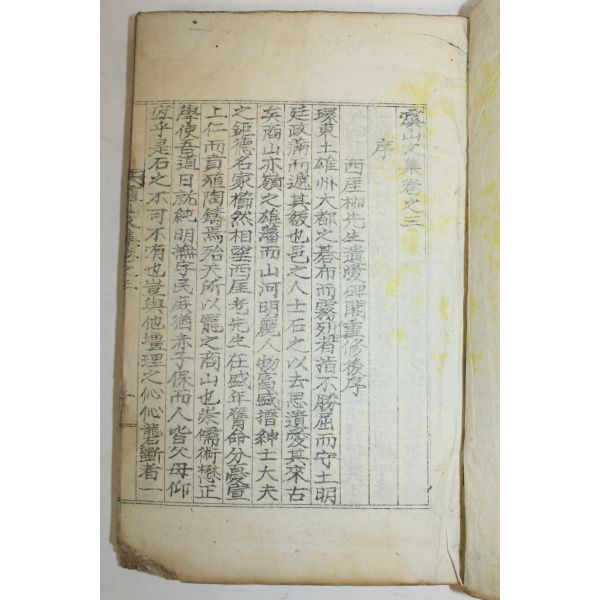 虞山文集卷之三
序
西厓柳先生遺愛碑閣重修後序
環東土雄州大都之碁布而霧列者指不勝屈而守土明
廷政滿而遞其級也邑之人士石之以去思遺愛其來古
矣商山亦嶺之雄藩而山河明麗人物富盛搢紳士大夫
之鉅德名家櫛然相望西厓老先生在盛年膺命分憂宣
上仁而賁殖陶鑄焉殆天所以寵之商山也崇儒術懋正
學使吾道日就純明撫字民庶猶赤子保而人皆父母仰
宜乎是石之不可不有也豈與他壃理之伈伈礱斲者一